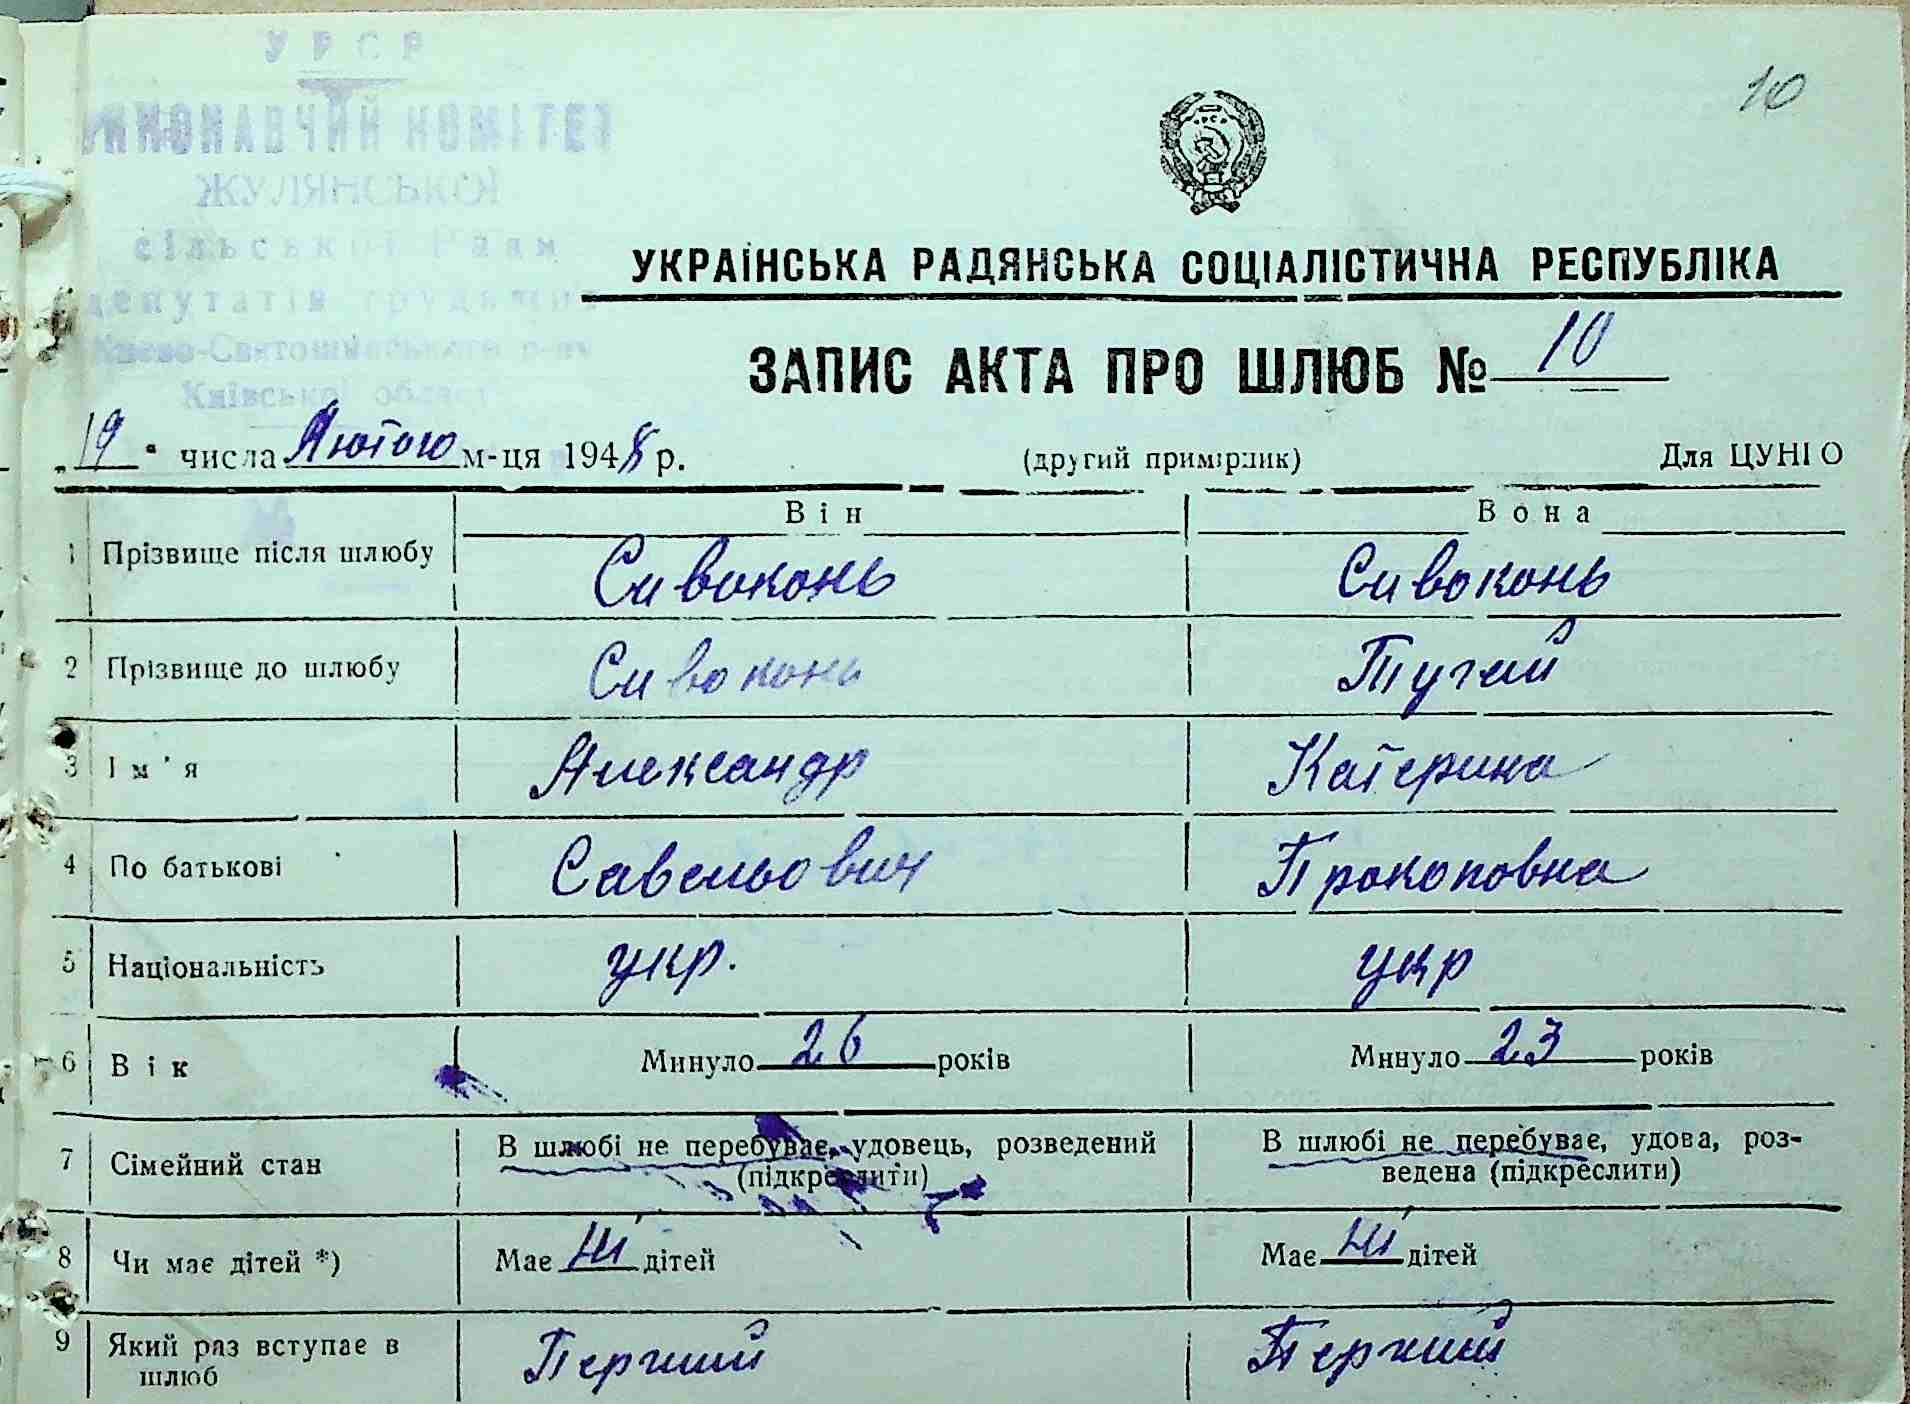 УРСР
ВИКОНАВЧИЙ КОМІТЕТ
ЖУЛЯНСЬКОЇ
сільської Ради
депутатів трудящих
Києво-Святошинського р-ну
Київської області
10
УКРАЇНСЬКА РАДЯНСЬКА СОЦІАЛІСТИЧНА РЕСПУБЛІКА
ЗАПИС АКТА ПРО ШЛЮБ № 10
„19" числа Лютого м-ця 1948 р. (другий примірник) Для ЦУНГО
Він Вона
1 Прізвище після шлюбу Сивоконь Сивоконь
2 Прізвище до шлюбу Сивоконь Тугай
3 Ім'я Александр Катерина
4 По батькові Савельович Прокоповна
5 Національність укр. укр
6 Вік Минуло 26 років Минуло 23 років
7 Сімейний стан В шлюбі не перебуває, удовець, розведений (підкреслити) В шлюбі не перебуває, удова, роз-
ведена (підкреслити)
8 Чи має дітей *) Має ні дітей Має ні дітей
9 Який раз вступає в шлюб Перший Перший